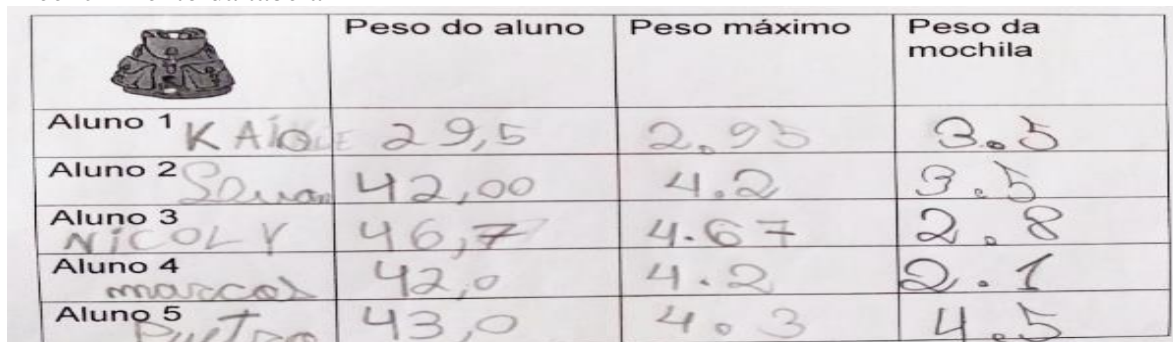 Peso do aluno Peso máximo Peso da
mochila
Aluno 1 29,5 2.95 3.5
Aluno 2 42,00 4.2 3.5
Aluno 3
NICOLY 46,7 4.67 2.8
Aluno 4
marcos 42,0 4.2 2.1
Aluno 5 43,0 4.3 4.5